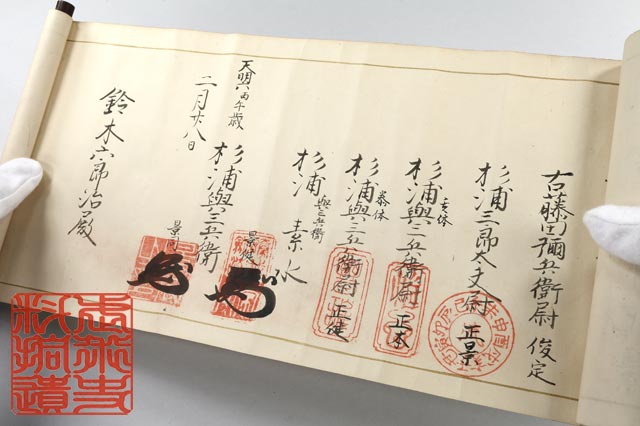 古藤田彌兵衛尉 俊定
杉浦三郎太夫尉 正景
杉浦與三兵衛尉 正本
杉浦與三兵衛尉 正健
杉浦 與三兵衛 素水
天明六丙午歳
杉浦與三兵衛
景健
景
二月廿八日
鈴木六郎治殿